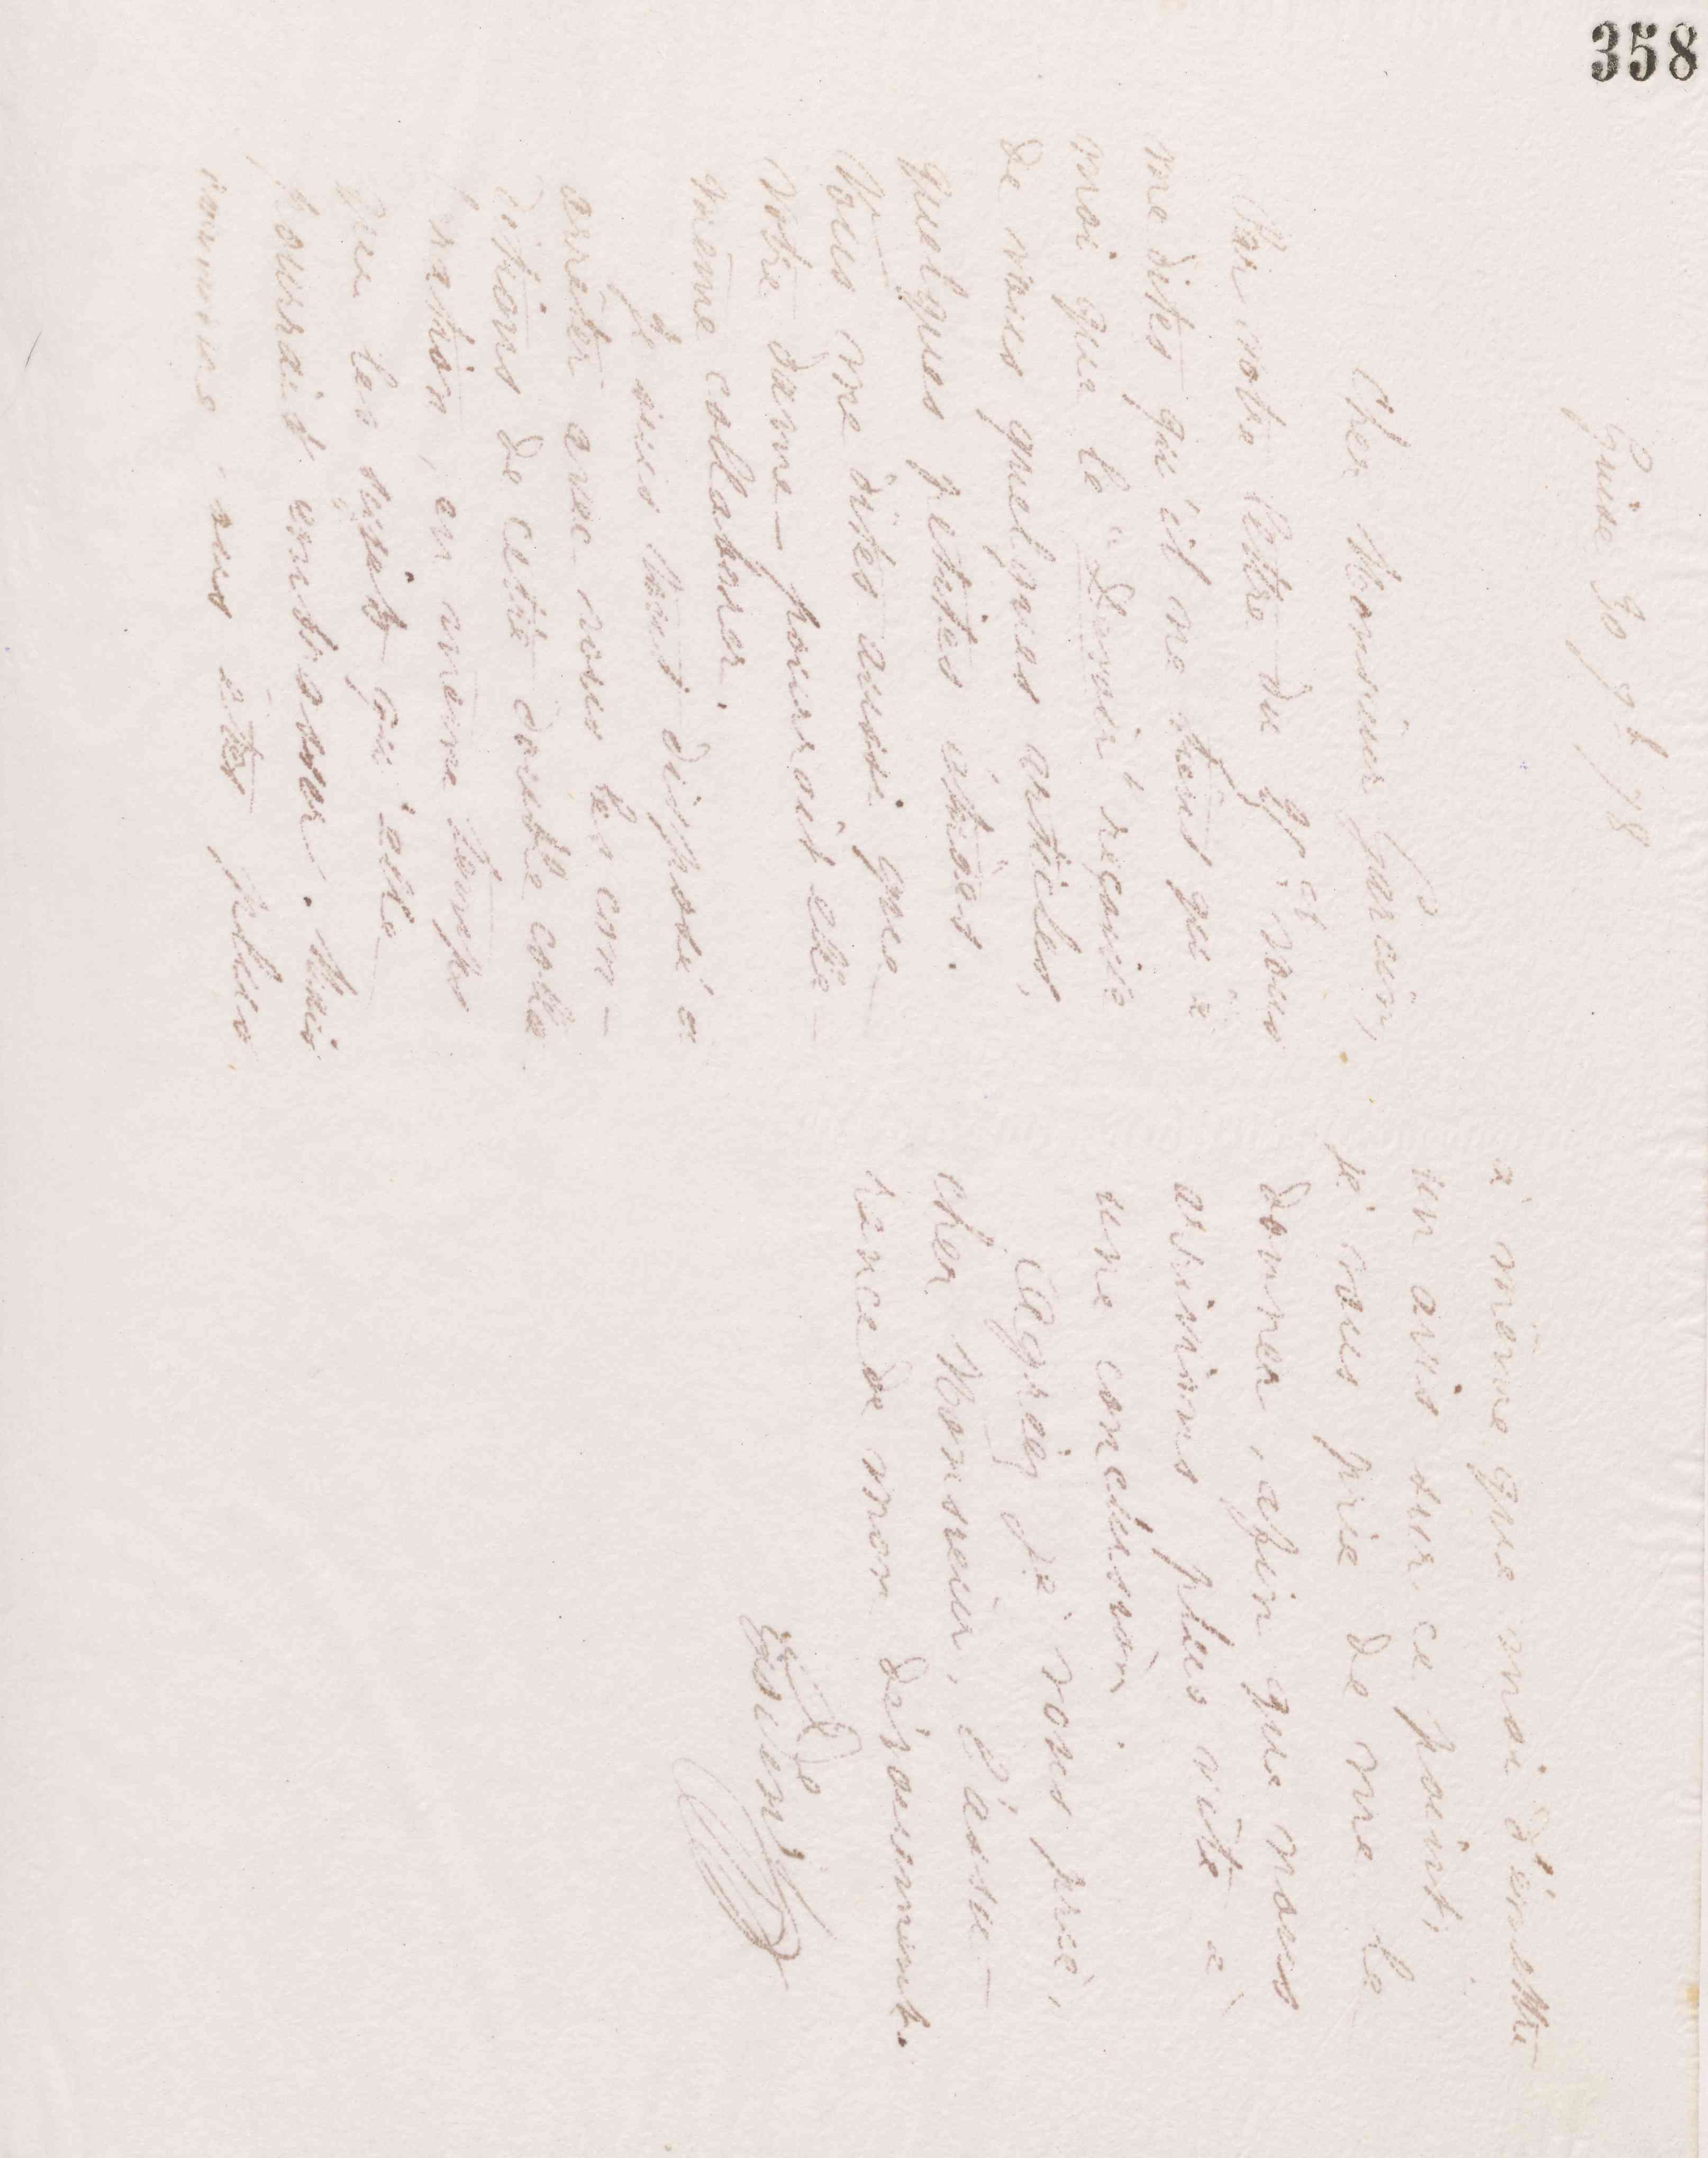 358
Guise 30 9bre 78
Cher Monsieur Garcin,
Par votre lettre du 9 ct, vous
me dites qu'il ne tient qu'à
moi que le "Devoir" reçoive
de vous quelques articles,
quelques petites études.
Vous me dites aussi que
votre dame pourrait elle-
même collaborer.
Je suis tout disposé à
arrêter avec vous les con-
ditions de cette double colla-
boration, en même temps
que les sujets qu'elle
pourrait embrasser. Mais
comme vous êtes plus
à même que moi d'émettre
un avis sur ce point,
je vous prie de me le
donner, afin que nous
arrivions plus vite à
une conclusion.
Agréez je vous prie,
cher Monsieur, l'assu-
rance de mon dévouement.
Godin